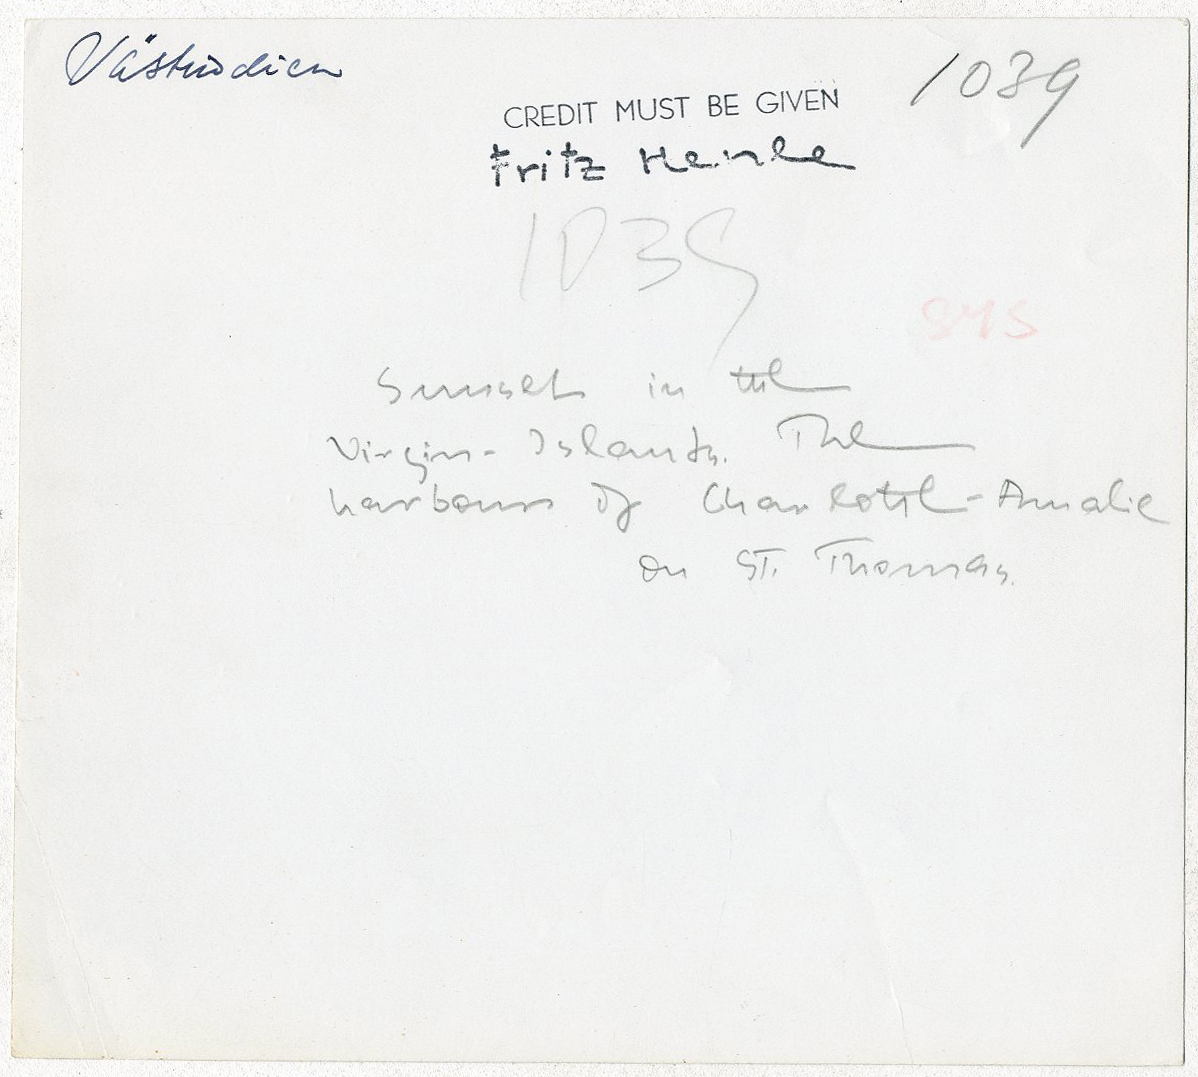 Västindien
1039
CREDIT MUST BE GIVEN
Fritz Henle
1039
Sunset in the
Virgin-Islands. The
harbour of Charlotte-Amalie
on ST. Thomas.